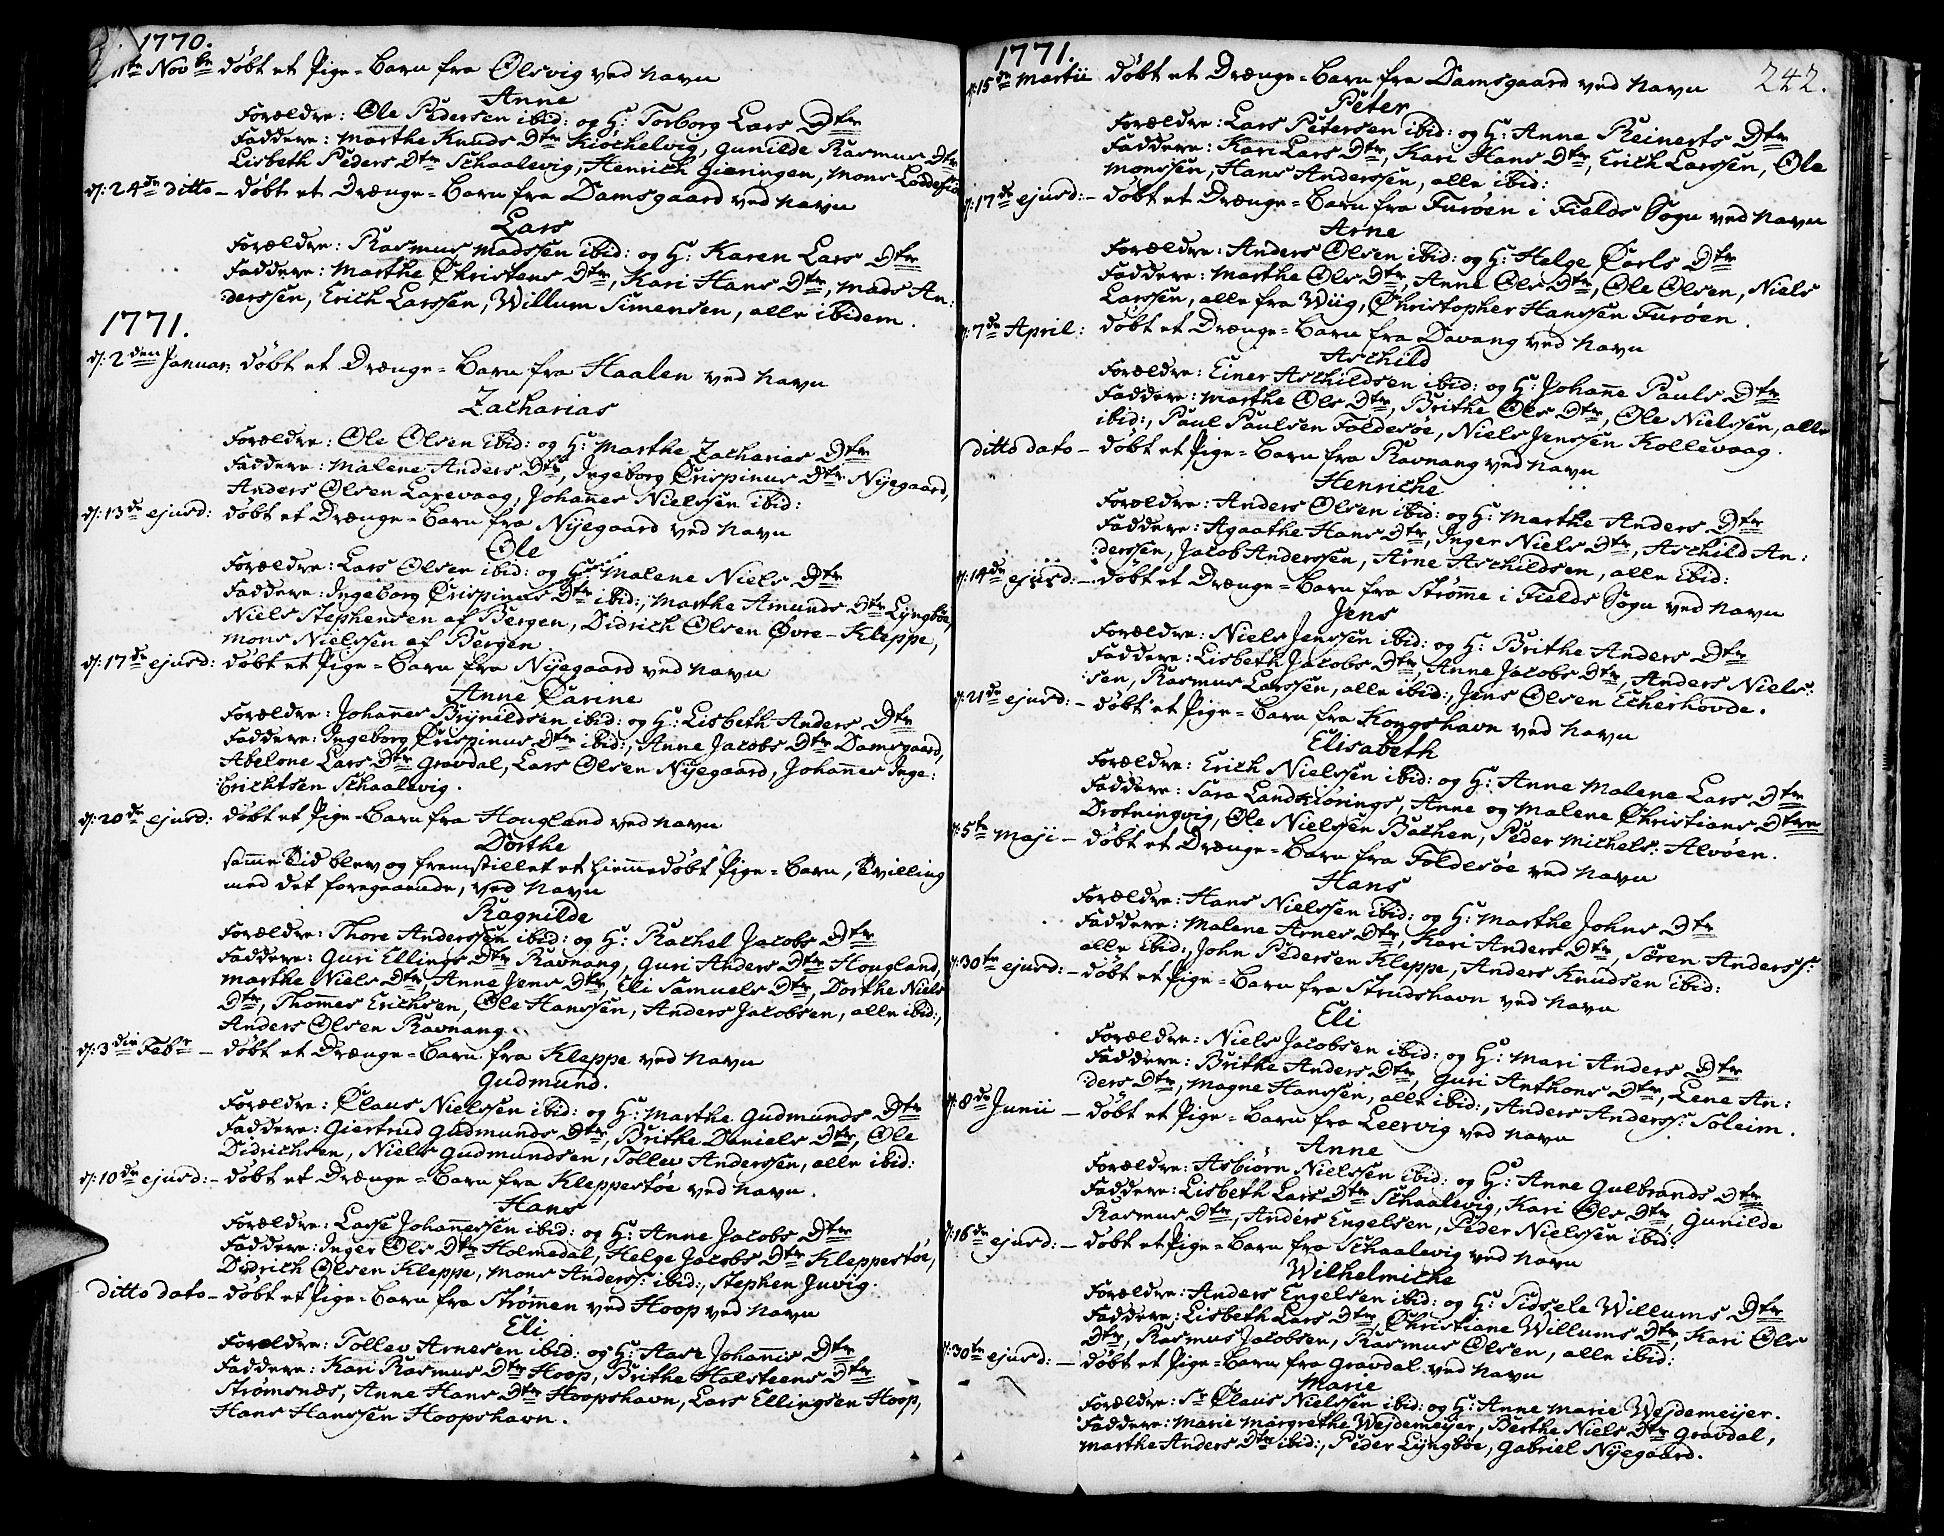 1770.
11te Novbr døbt et Pige-Barn fra Ølsvig ved Navn
Anne
Forældre: Ole Pedersen ibid: og H: Torborg Lars Dtr
Faddere: Marthe Knuds Dtr Kiøchelvig, Gunilde Rasmus Dtr
Lisbeth Peders Dtr Schaalevig, Henrich Gieringen, Mons Loddefiord
d: 24de ditto – døbt et Drænge-Barn fra Damsgaard ved Navn
Lars
Forældre: Rasmus Madssen ibid: og H: Karen Lars Dtr
Faddere: Marthe Christens Dtr, Kari Hans Dtr, Mads An:
derssen, Erich Larssen, Willum Simensen, alle ibidem.
1771.
d: 2den Januar: døbt et Drænge-Barn fra Haalen ved Navn
Zacharias
Forældre: Ole Olsen ibid: og H: Marthe Zacharias Dtr
Faddere: Malene Anders Dtr, Ingeborg Crispinus Dtr Nyegaard,
Anders Olsen Laxevaag, Johannes Nielssen ibid:
d: 13de ejusd: døbt et Drænge-Barn fra Nyegaard ved Navn
Ole
Forældre: Lars Olsen ibid: og H: Malene Niels Dtr
Faddere: Ingeborg Crispinus Dtr ibid:, Marthe Amunds Dtr Lyngbøe,
Niels Stephensen af Bergen, Didrich Olsen Øvre-Kleppe,
Mons Nielssen af Bergen
d: 17de ejusd: døbt et Pige-Barn fra Nyegaard ved Navn
Anne Carine
Forældre: Johannes Brynildsen ibid: og H: Lisbeth Anders Dtr
Faddere: Ingeborg Crispinus Dtr ibid:, Anne Jacobs Dtr Damsgaard,
Abelone Lars Dtr Gravdal, Lars Olsen Nyegaard, Johannes Inge:
brichtsen Schaalevig.
d: 20de ejusd: døbt et Pige-Barn fra Hougland ved Navn
Dorthe
samme Tid blev og fremstillet et hiemmedøbt Pige-Barn, Tvilling
med det foregaaende, ved Navn
Ragnilde
Forældre: Thore Anderssen ibid: og H: Rachel Jacobs Dtr
Faddere: Guri Ellings Dtr Ravnang, Guri Anders Dtr Hougland,
Marthe Niels Dtr, Anne Jens Dtr, Eli Samuels Dtr, Dorthe Niels
Dtr, Thomes Erichsen, Ole Hanssen, Anders Jacobsen, alle ibid:,
Anders Olsen Ravnang.
d: 3die Febr – døbt et Drænge-Barn fra Kleppe ved Navn
Gudmund.
Forældre: Claus Nielssen ibid: og H: Marthe Gudmunds Dtr
Faddere: Giertrud Gudmunds Dtr, Brithe Daniels Dtr, Ole
Didrichsen, Niels Gudmundsen, Tollev Anderssen, alle ibid:
d: 10de ejusd: – døbt et Drænge-Barn fra Kleppestøe ved Navn.
Hans
Forældre: Lasse Johannessen ibid: og H: Anne Jacobs Dtr
Faddere: Inger Ols Dtr Holmedal, Helge Jacobs Dtr Kleppestøe,
Didrich Olsen Kleppe, Mons Anderss: ibid:, Stephen Juvig.
ditto dato – døbt et Pige-Barn fra Strømen ved Hoop ved Navn
Eli
Forældre: Tollev Arnesen ibid: og H: Aase Johannis Dtr
Faddere: Kari Rasmus Dtr Hoop, Brithe Halsteens Dtr
Strømsnæs, Anne Hans Dtr Hoopshavn, Lars Ellingsen Hoop,
Hans Hanssen Hoopshavn.
1771.
242.
d: 15de Martii døbt et Drænge-Barn fra Damsgaard ved Navn
Peter
Forældre: Lars Petersen ibid: og H: Anne Reinerts Dtr
Faddere: Kari Lars Dtr, Kari Hans Dtr, Erich Larssen, Ole
Monssen, Hans Anderssen, alle ibid:
d: 17de ejusd: – døbt et Drænge-Barn fra Furøen i Fields Sogn ved Navn
Arne
Forældre: Anders Olsen ibid: og H: Helge Carls Dtr
Faddere: Marthe Ols Dtr, Anne Ols Dtr, Ole Olsen, Niels
Larssen, alle fra Wiig, Christopher Hanssen Furøen.
d: 7de April: døbt et Drænge-Barn fra Davang ved Navn
Aschild
Forældre: Einer Aschildsen ibid: og H: Johanne Pauls Dtr
Faddere: Marthe Ols Dtr, Brithe Ols Dtr, Ole Nielssen, alle
ibid:, Paul Paulsen Foldesøe, Niels Jenssen Kollevaag.
ditto dato – døbt et Pige-Barn fra Ravnang ved Navn
Henriche
Forældre: Anders Olsen ibid: og H: Marthe Anders Dtr
Faddere: Agaathe Hans Dtr, Inger Niels Dtr, Aschild An:
derssen, Jacob Anderssen, Arne Aschildsen, alle ibid:
d: 14de ejusd: – døbt et Drænge-Barn fra Strømme i Fields Sogn ved Navn
Jens
Forældre: Niels Jenssen ibid: og H: Brithe Anders Dtr
Faddere: Lisbeth Jacobs Dtr, Anne Jacobs Dtr, Anders Niels:
sen, Rasmus Larssen, alle ibid:, Jens Olsen Echerhovde.
d: 21de ejusd: – døbt et Pige-Barn fra Kongshavn ved Navn
Elisabeth
Forældre: Erich Nielssen ibid: og H: Anne Malene Lars Dtr
Faddere: Sara Landkiørings, Anne og Malene Christians Dtre
Drotningvig, Ole Nielssen Bachen, Peder Michels: Alvøen.
d: 5te Maji – døbt et Drænge-Barn fra Foldesøe ved Navn
Hans
Forældre: Hans Nielssen ibid: og H: Marthe Johns Dtr
Faddere: Malene Arnes Dtr, Kari Anders Dtr, Søren Anderss:
alle ibid:, John Pedersen Kleppe, Anders Knudsen ibid:
d: 30te ejusd: – døbt et Pige-Barn fra Strudshavn ved Navn
Eli
Forældre: Niels Jacobsen ibid: og H: Mari Anders Dtr
Faddere: Brithe Anders Dtr, Guri Anthons Dtr, Lene An:
ders Dtr, Magne Hanssen, alle ibid:, Anders Anderss: Soleim.
d: 8de Junii – døbt et Pige-Barn fra Leervig ved Navn
Anne
Forældre: Asbiørn Nielssen ibid: og H: Anne Gulbrands Dtr
Faddere: Lisbeth Lars Dtr Schaalevig, Kari Ols Dtr, Gunilde
Rasmus Dtr, Anders Engelsen, Peder Nielssen ibid:
d: 16de ejusd: – døbt et Pige-Barn fra Schaalevig ved Navn
Wilhelmiche
Forældre: Anders Engelsen ibid: og H: Sidsele Willums Dtr
Faddere: Lisbeth Lars Dtr, Christiane Willums Dtr, Kari Ols
Dtr, Rasmus Jacobsen, Rasmus Olsen, alle ibid:
d: 30te ejusd: – døbt et Pige-Barn fra Gravdal ved Navn
Marie
Forældre: Sr Claus Nielssen ibid: og H: Anne Marie Wejdemeijer.
Faddere: Marie Margrethe Wejdemeijer, Berthe Niels Dtr Gravdal,
Marthe Anders Dtr ibid:, Peder Lyngbøe, Gabriel Nyegaard.